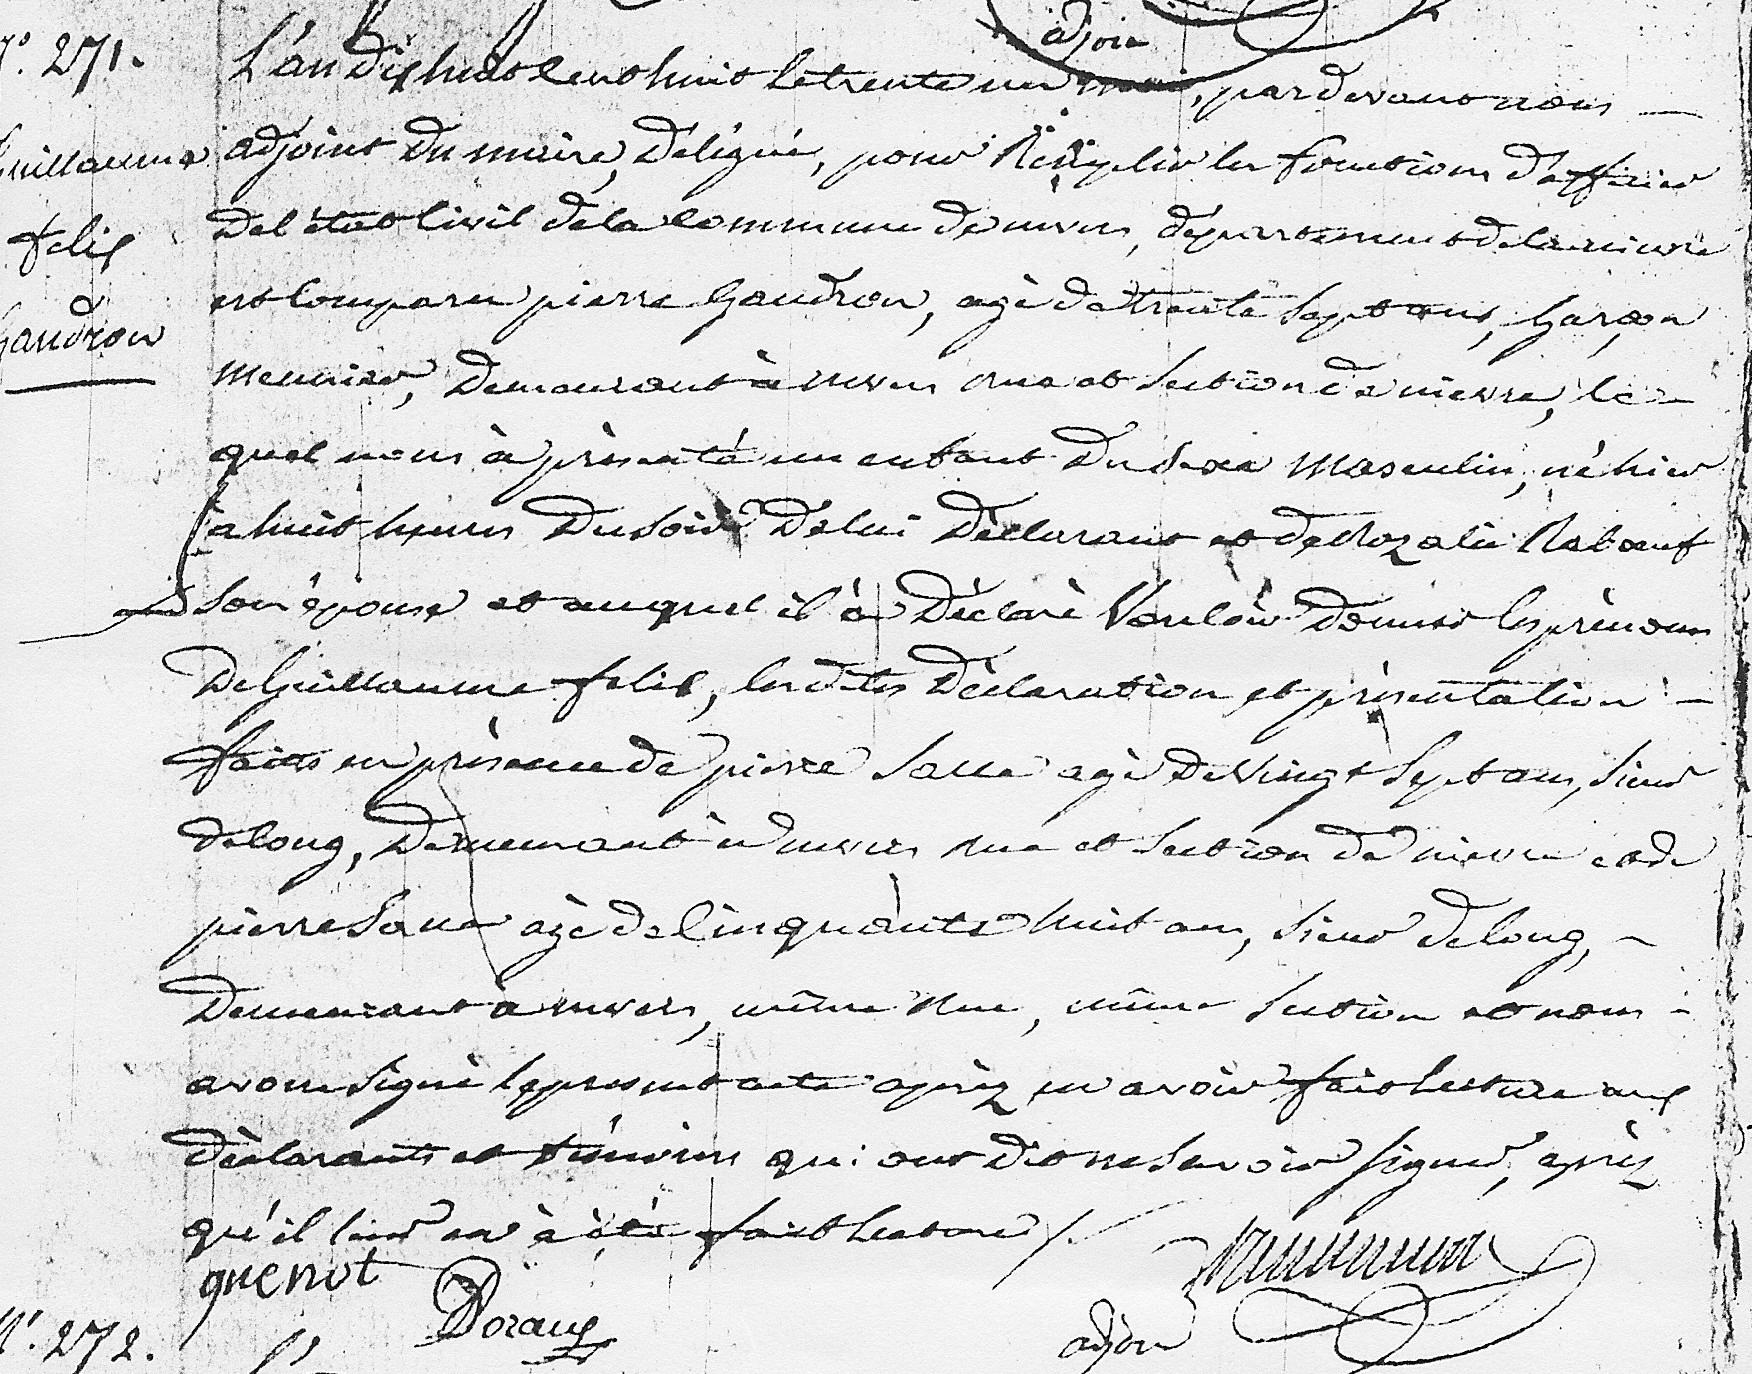 adjoin
N.° 271.
L'an dix huit cent huit le trente un mai, par devant nous
Guillaume
adjoint du maire, délégué, pour Remplir les fonctions d'officier
felix
De l'état Civil de la Commune de nevers, département de la nievre
Gaudron
est Comparu pierre Gaudron, agé de trente Sept ans, Garçon
meunier, Demeurant à nevers rue et Section de nievre, le
quel nous à présenté un enfant Du Sexe Masculin, né hier
à huit heures Du Soir De lui Déclarant et de Rozalie Rabeuf
Son épouse et auquel il à Déclaré Vouloir Donner les prénoms
De Guillaume felix, les dites Déclaration et présentation
faites en présence de pierre Saue agé De Vingt Sept ans, Sieur
de long, Demeurant à nevers rue et Section de nievre et de
pierre Saue agé de Cinquante huit ans, Sieur de long,
Demeurant à nevers, même Rue, même Section et nous
avons Signé le present acte après en avoir fait lecture aux
déclarants et témoins qui ont Dit ne Savoir Signer, après
qu'il leur en à été fait lecture /.
guenot
Doraux
adjoin
N.° 272.